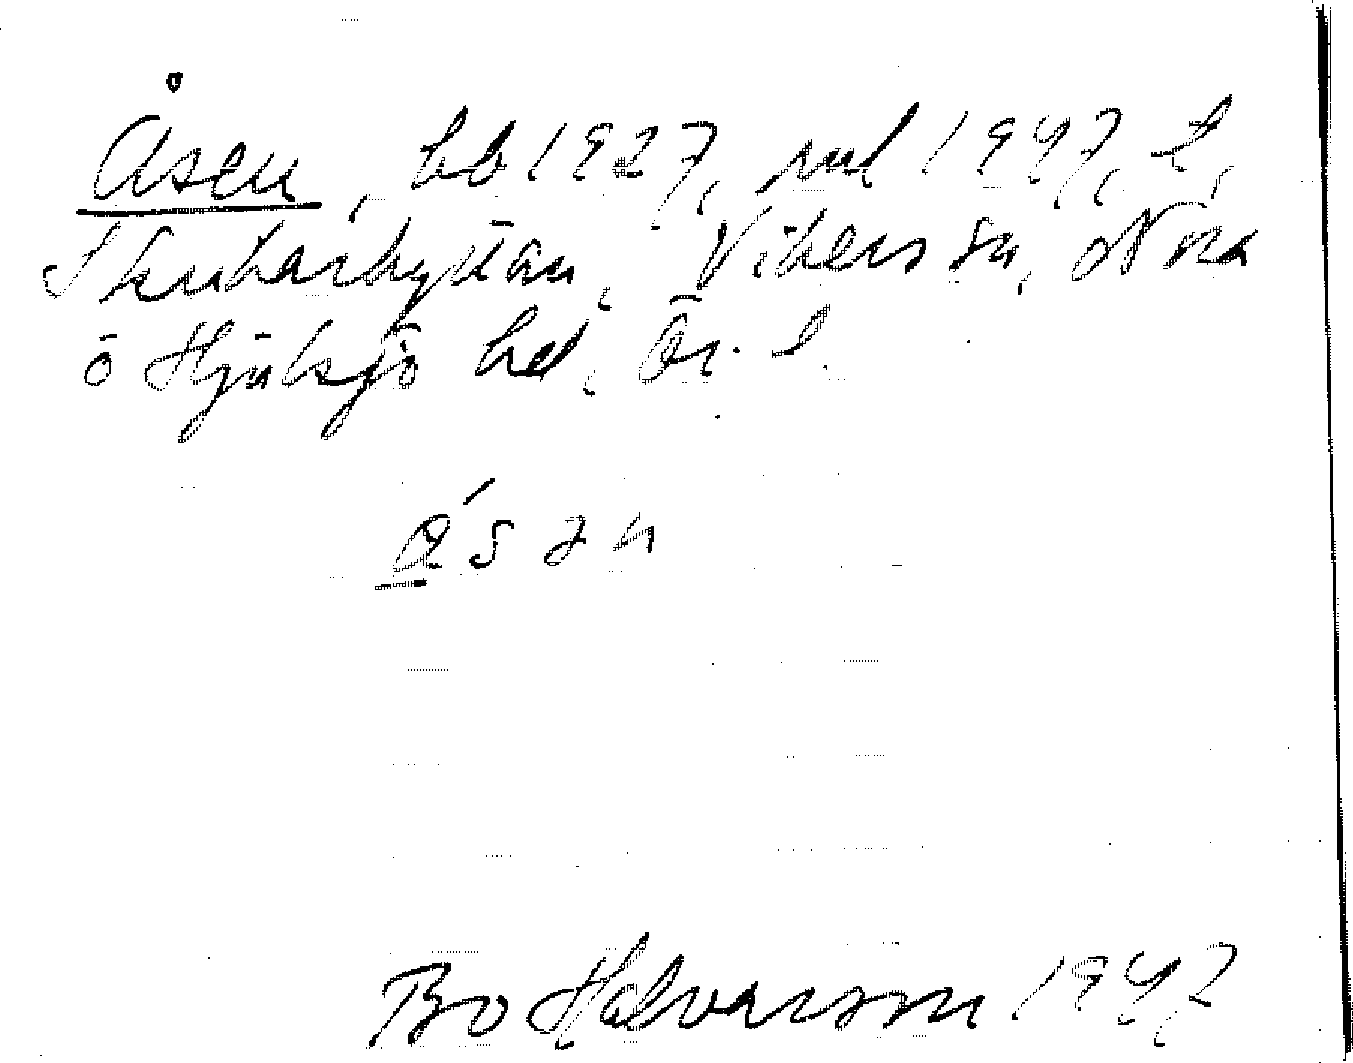 Åsen, bb 1927, rul 1947, t,
Skrikarhyttan, Vikers sn, Nora
o Hjulsjö bd, Ör. l
å´san
Bo Halvarsson 1947